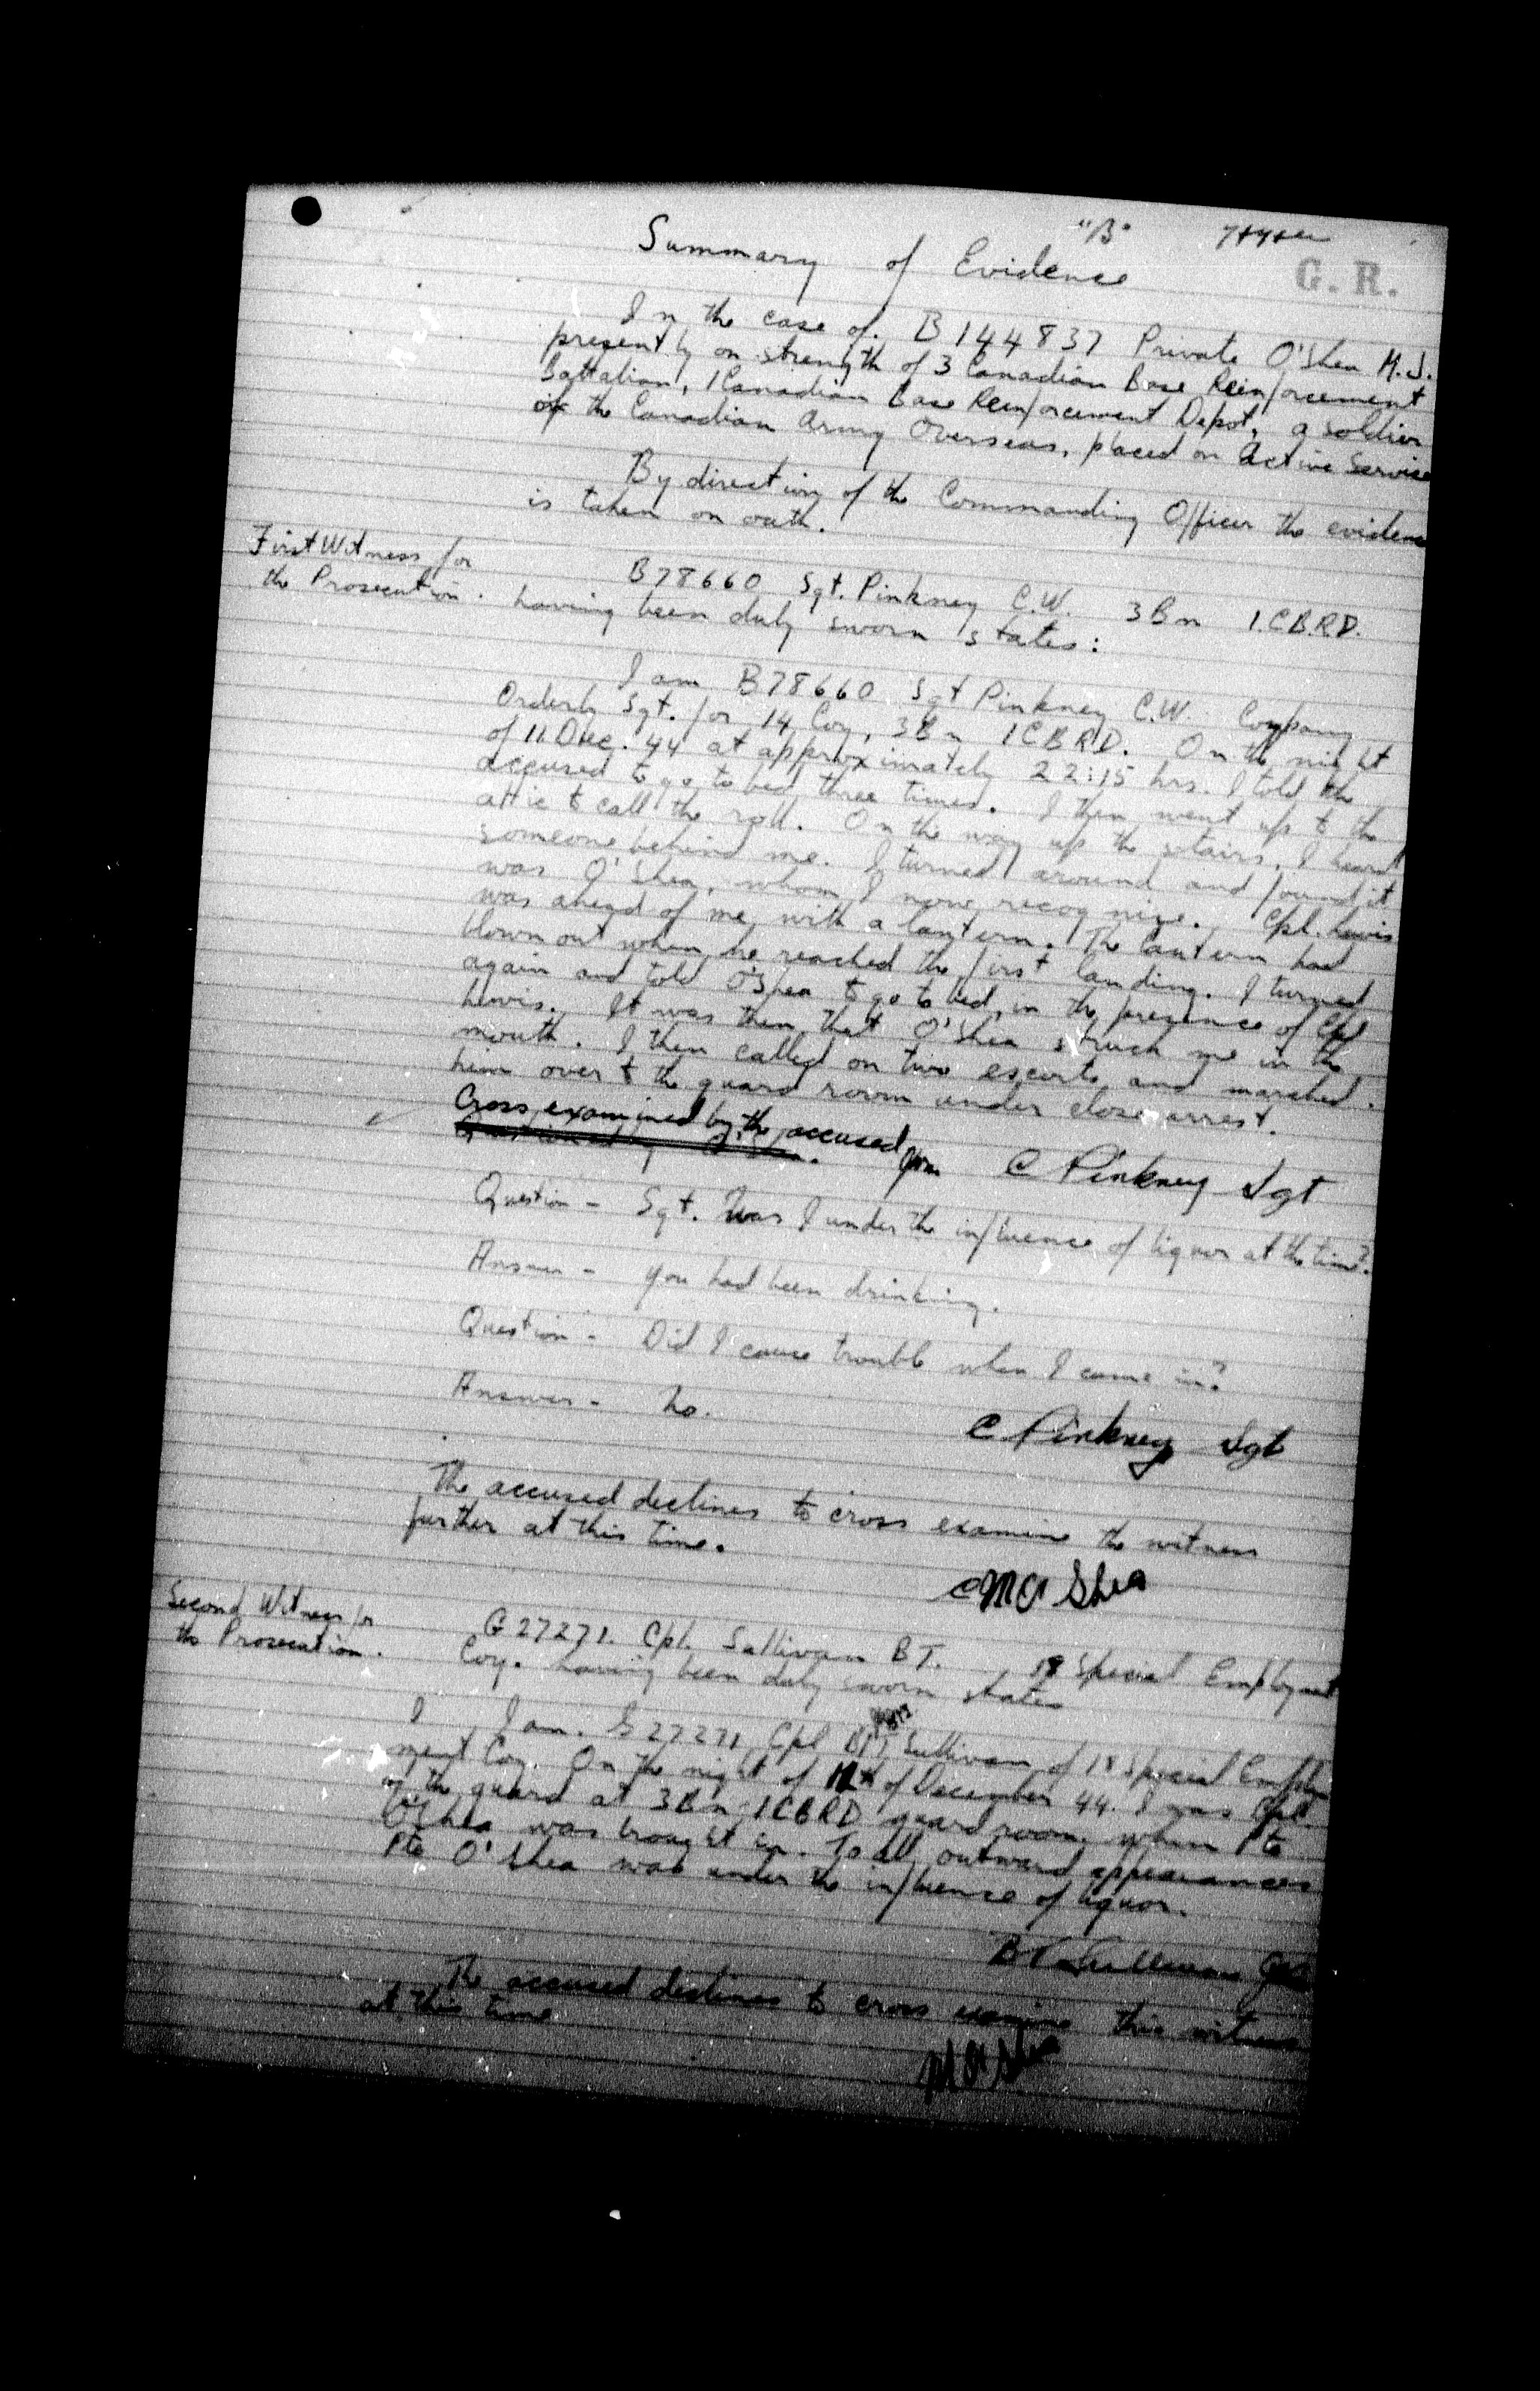 "B"
G. R.
Summary of Evidence
In the case of. B144837 Private O'Shea M.J.
presently on strength of 3 Canadian Base Reinforcement
Battalion, 1 Canadian Base Reinforcement Depot, a soldier
of the Canadian Army Overseas, placed on Active Service
By direction of the Commanding Officer the evidence
is taken on oath.
First Witness for
the Prosecution.
B78660 Sgt. Pinkney C.W. 3Bn 1.C.B.R.D.
having been duly sworn states:
I am B78660 Sgt Pinkney C.W. Company
Orderly Sgt. for 14 Coy, 3Bn 1CBRD. On the night
of 11 Dec. 44 at approximately 22:15 hrs. I told the
accused to go to bed three times. I then went up to the
attic to call the roll. On the way up the stairs, I heard
someone behind me. I turned around and found it
was O'Shea, whom I now recognize. Cpl. Lewis
was ahead of me with a lantern. The lantern had
blown out when he reached the first landing. I turned
again and told O'Shea to go to bed, in the presence of Cpl
Lewis. It was then that O'Shea struck me in the
mouth. I then called on two escorts and marched
him over to the guard room under close arrest.
Cross examined by the accused
C Pinkney Sgt
Question - Sgt. Was I under the influence of liquor at the time?
Answer - You had been drinking.
Question - Did I cause trouble when I came in?
Answer - No.
C Pinkney Sgt
The accused declines to cross examine the witness
further at this time.
M O'Shea
Second Witness for
the Prosecution.
G27271. Cpl. Sullivan BT. 18 Special Employment
Coy. having been duly sworn states
I am. G27271 Cpl BT Sullivan of 18 Special Employ
ment Coy. On the night of of December 44. I was Cpl.
of the guard at 3Bn 1CBRD guard room when Pte
O'Shea was brought in. To all outward appearances
Pte O'Shea was under the influence of liquor.
BT Sullivan Cpl
The accused declines to cross examine this witness
at this time
M O'Shea